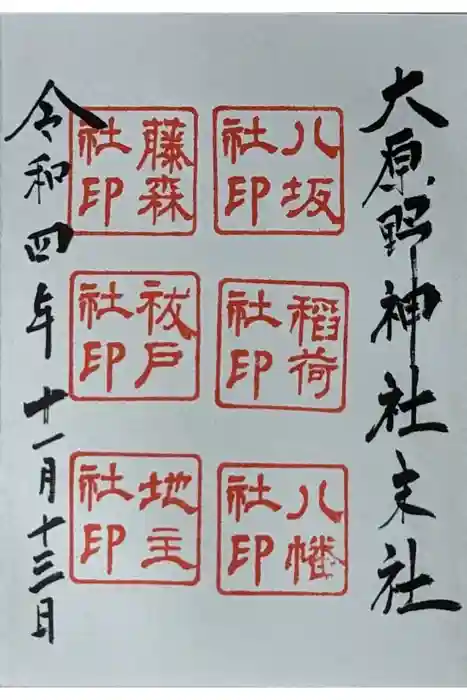 大原野神社末社
八坂
社印
稻荷
社印
八幡
社印
藤森
社印
祓戸
社印
地主
社印
令和四年十一月十三日